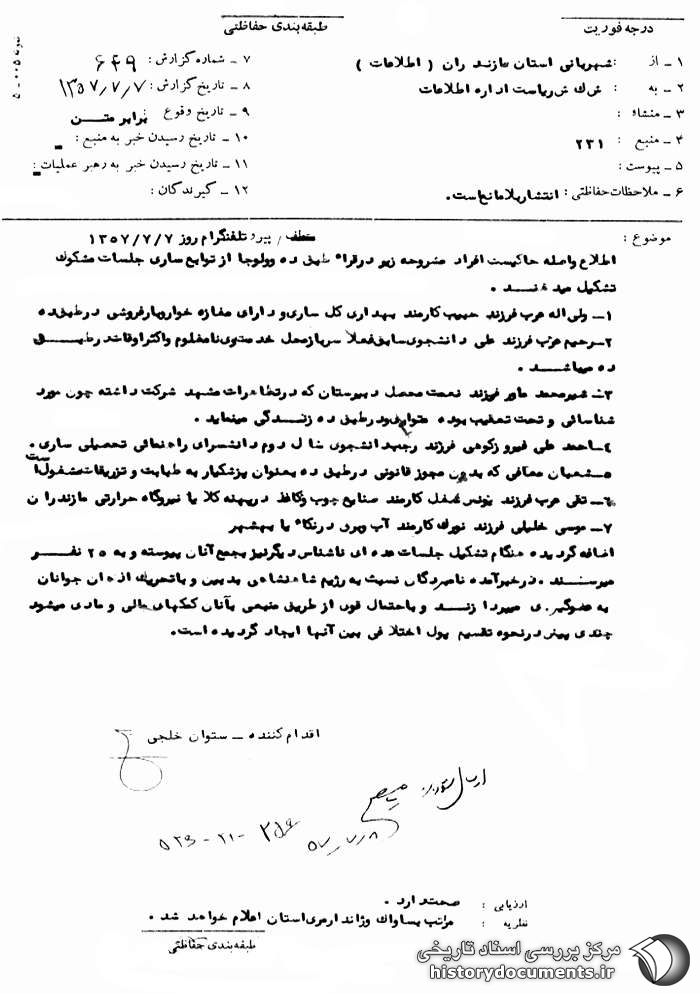 درجه فوریت
طبقه بندی حفاظتی
نمونه ۰۰۵ - ۵
۱ - از : شهربانی استان مازندران ( اطلاعات )
۲ - به : ش ك ش ریاست اداره اطلاعات
۳ - منشاء :
۴ - منبع : ۲۳۱
۵ - پیوست :
۶ - ملاحظات حفاظتی : انتشار بلامانع است .
۷ - شماره گزارش : ۶۴۹
۸ - تاریخ گزارش : ۱۳۵۷/۷/۷
۹ - تاریخ وقوع : برابر متن
۱۰ - تاریخ رسیدن خبر به منبع : -
۱۱ - تاریخ رسیدن خبر به رهبر عملیات : -
۱۲ - گیرندگان :
موضوع : عطف / پیرو تلفنگرام روز ۱۳۵۷/۷/۷
اطلاع واصله حاکیست افراد مشروحه زیر در قراء طبق ده وولوجا از توابع ساری جلسات مشکوک
تشکیل میدهند .
۱ - ولی اله عرب فرزند حبیب کارمند بهداری کل ساری و دارای مغازه خواروبار فروشی در طبق ده
۲ - رحیم عرب فرزند علی دانشجوی سابق فعلا سرباز محل خدمت وی نامعلوم واکثر اوقات در طبق
ده میباشد .
۳ - شیرمحمد فرزند نعمت محصل دبیرستان که در تظاهرات مشهد شرکت داشته چون مورد
شناسائی و تحت تعقیب بوده متواری و در طبق ده زندگی مینماید .
۴ - احمد علی فیروزکوهی فرزند رجب دانشجوی سال دوم دانشسرای راهنمائی تحصیلی ساری .
۵ - شعبان معافی که بدون مجوز قانونی در طبق ده بعنوان پزشکیار به طبابت و تزریقات مشغول است
۶ - تقی عرب فرزند یونس کارمند صنایع چوب وکاغذ در یا نیروگاه حرارتی مازندران
۷ - موسی خلیلی فرزند کارمند آب وبرق در نکاء یا بهشهر
اضافه گردیده هنگام تشکیل جلسات عده ای ناشناس دیگر نیز بجمع آنان پیوسته و به ۲۵ نفر
میرسند . در خبر آمده نامبردگان نسبت به رژیم شاهنشاهی بدبین و با تحریک اذهان جوانان
به عضوگیری میپردازند و باحتمال قوی از طریق منبعی بآنان کمکهای مالی و مادی میشود
چندی پیش در نحوه تقسیم پول اختلافی بین آنها ایجاد گردیده است .
اقدام کننده - ستوان خلجی
ارسال
۵۷/۷/۸
ارزیابی : صحت دارد .
نظریه : مراتب بساواک وژاندارمری استان اعلام خواهد شد .
طبقه بندی حفاظتی
مرکز بررسی اسناد تاریخی
historydocuments.ir